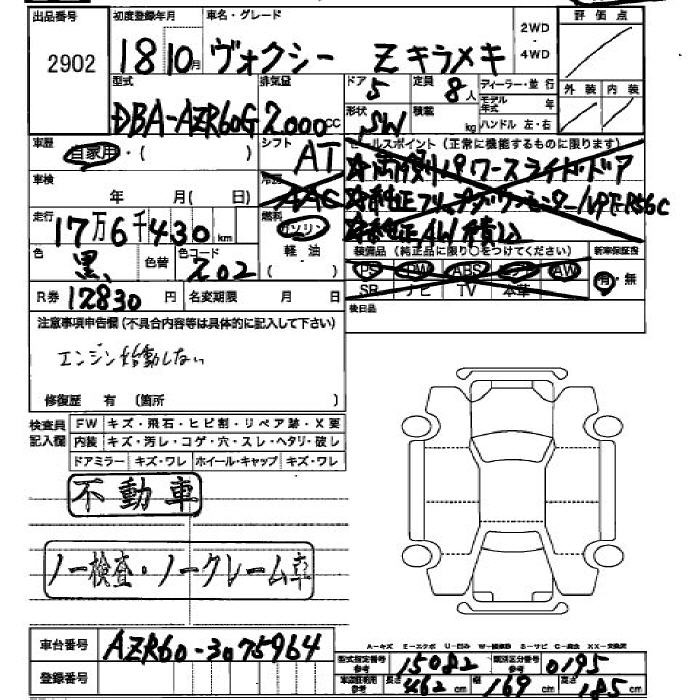 出品番号 初度登録年月 車名・グレード 2WD 評価点
2902 18 10月 ヴォクシー Z キラメキ 4WD
型式 排気量 ドア 定員 ディーラー・並行 外装 内装
DBA-AZR60G 2000cc 5 8人 モデル年式 年
形状 積載 kg ハンドル 左・右
SW
車歴 自家用・( ) シフト AT セールスポイント(正常に機能するものに限ります)
車検 年 月(日) 冷房 AAC
走行 17万6千430km 燃料 ガソリン
軽油
純正AW積込
色 黒 色替 色コード 202 装備品(純正品に限り○をつけてください) 新車保証書
PS PW ABS AW 有・無
SR ナビ TV 本革
R券 12830円 名変期限 月 日 後日品
注意事項申告欄(不具合内容等は具体的に記入して下さい)
エンジン始動しない
修復歴 有 (箇所 )
検査員記入欄 FW キズ・飛石・ヒビ割・リペア跡・X要
内装 キズ・汚レ・コゲ・穴・スレ・ヘタリ・破レ
ドアミラー キズ・ワレ ホイール・キャップ キズ・ワレ
不動車
ノー検査・ノークレーム車
車台番号 AZR60-3075964
登録番号
型式指定番号 参考 15082 類別区分番号 参考 0195
車検証明用 参考 長さ 462cm 幅 169cm 高さ 185cm